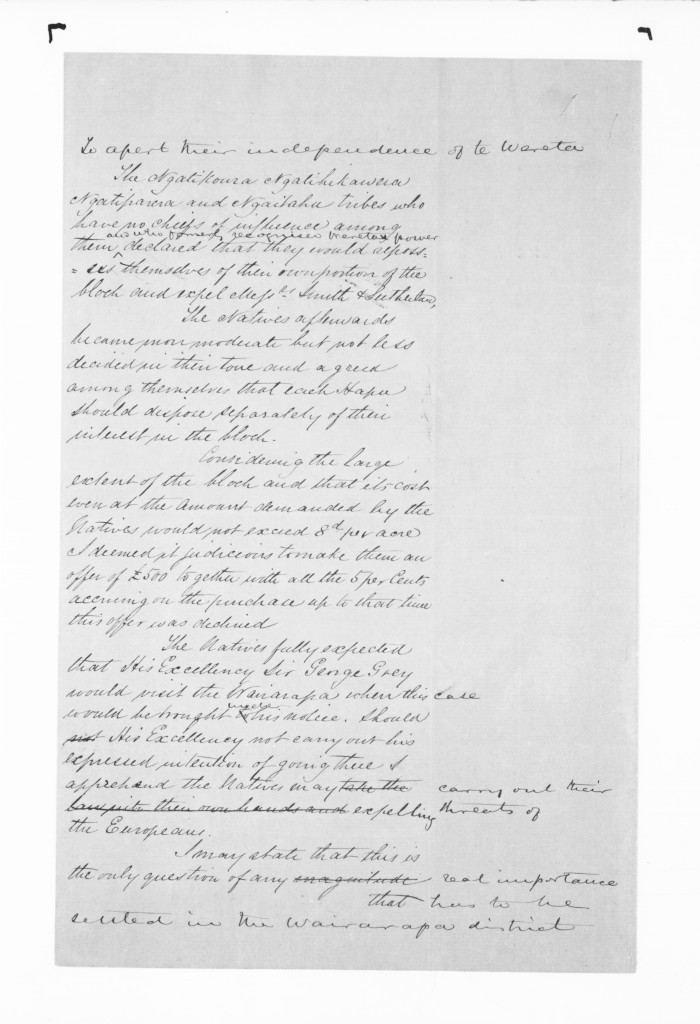 To assert their independence of te Wereta
The Ngatikoura Ngatihikawera
Ngatiparera and Ngaitahu tribes who
have no chiefs of influence among
and who formerly recognised Weretas power
them declared that they would reposs=
=ess themselves of their own portion of the
block and expel Messrs Smith & Sutherland,
The Natives afterwards
became more moderate but not less
decided in their tone and agreed
among themselves that each Hapu
should dispose separately of their
interest in the block.
Considering the large
extent of the block and that its cost
even at the amount demanded by the
Natives would not exceed 8d per acre
I deemed it judicious to make them an
offer of £500 together with all the 5 per Cents
accruing on the purchase up to that time
this offer was declined
The Natives fully expected
that His Excellency Sir George Grey
would visit the Wairarapa when this case
would be brought under his notice. Should
not His Excellency not carry out his
expressed intention of going there I
apprehend the Natives may take the carry out their
law into their own hands and expelling threats of
the Europeans.
I may state that this is
the only question of any magnitude real importance
that has to be
settled in the Wairarapa district